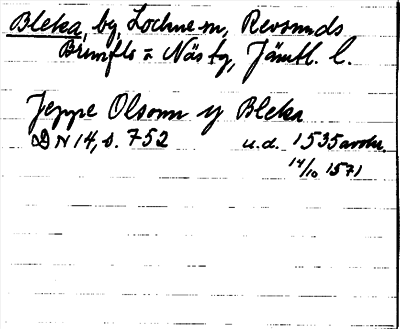 Bleka, by, Lockne sn, Revsunds
Brunflo o Näs tg, Jämtl. l.
Jeppe Olsonn y Bleka
DN 14, s. 752 u.d. 1535
14/10 1571